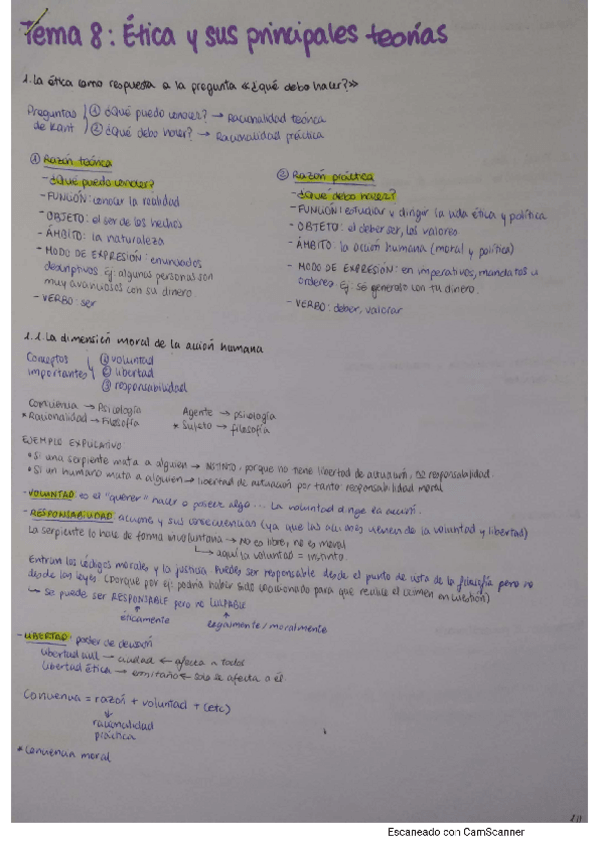 Tema 8: Ética y sus principales teorías
1. La ética como respuesta a la pregunta «¿qué debo hacer?»
Preguntas de Kant
① ¿Qué puedo conocer? → Racionalidad teórica
② ¿Qué debo hacer? → Racionalidad práctica
① Razón teórica
- ¿Qué puedo conocer?
- FUNCIÓN: conocer la realidad
- OBJETO: el ser de los hechos
- ÁMBITO: la naturaleza
- MODO DE EXPRESIÓN: enunciados
descriptivos. Ej: algunas personas son
muy avariciosos con su dinero.
- VERBO: ser
② Razón práctica
- ¿Qué debo hacer?
- FUNCIÓN: estudiar y dirigir la vida ética y política
- OBJETO: el deber ser, los valores
- ÁMBITO: la acción humana (moral y política)
- MODO DE EXPRESIÓN: en imperativos, mandatos u
órdenes. Ej: Sé generoso con tu dinero.
- VERBO: deber, valorar
1.1. La dimensión moral de la acción humana
Conceptos importantes
① voluntad
② libertad
③ responsabilidad
Conciencia → Psicología
* Racionalidad → Filosofía
Agente → psicología
* Sujeto → filosofía
EJEMPLO EXPLICATIVO:
• Si una serpiente mata a alguien → INSTINTO, porque no tiene libertad de actuación, no responsabilidad.
• Si un humano mata a alguien → libertad de actuación por tanto responsabilidad moral
- VOLUNTAD: es el "querer" hacer o poseer algo... La voluntad dirige la acción.
- RESPONSABILIDAD: acciones y sus consecuencias (ya que las acciones vienen de la voluntad y libertad)
La serpiente lo hace de forma involuntaria → no es libre, no es moral
↳ aquí la voluntad = instinto
Entran los códigos morales y la justicia. Puedes ser responsable desde el punto de vista de la filosofía pero no
desde las leyes. (porque por ej: podría haber sido coaccionado para que realice el crimen en cuestión)
↳ se puede ser RESPONSABLE pero no CULPABLE
éticamente
legalmente/moralmente
- LIBERTAD: poder de decisión
libertad civil → ciudad ← afecta a todos
libertad ética → ermitaño ← solo le afecta a él
Conciencia = razón + voluntad + (etc)
racionalidad
práctica
* Conciencia moral
Escaneado con CamScanner